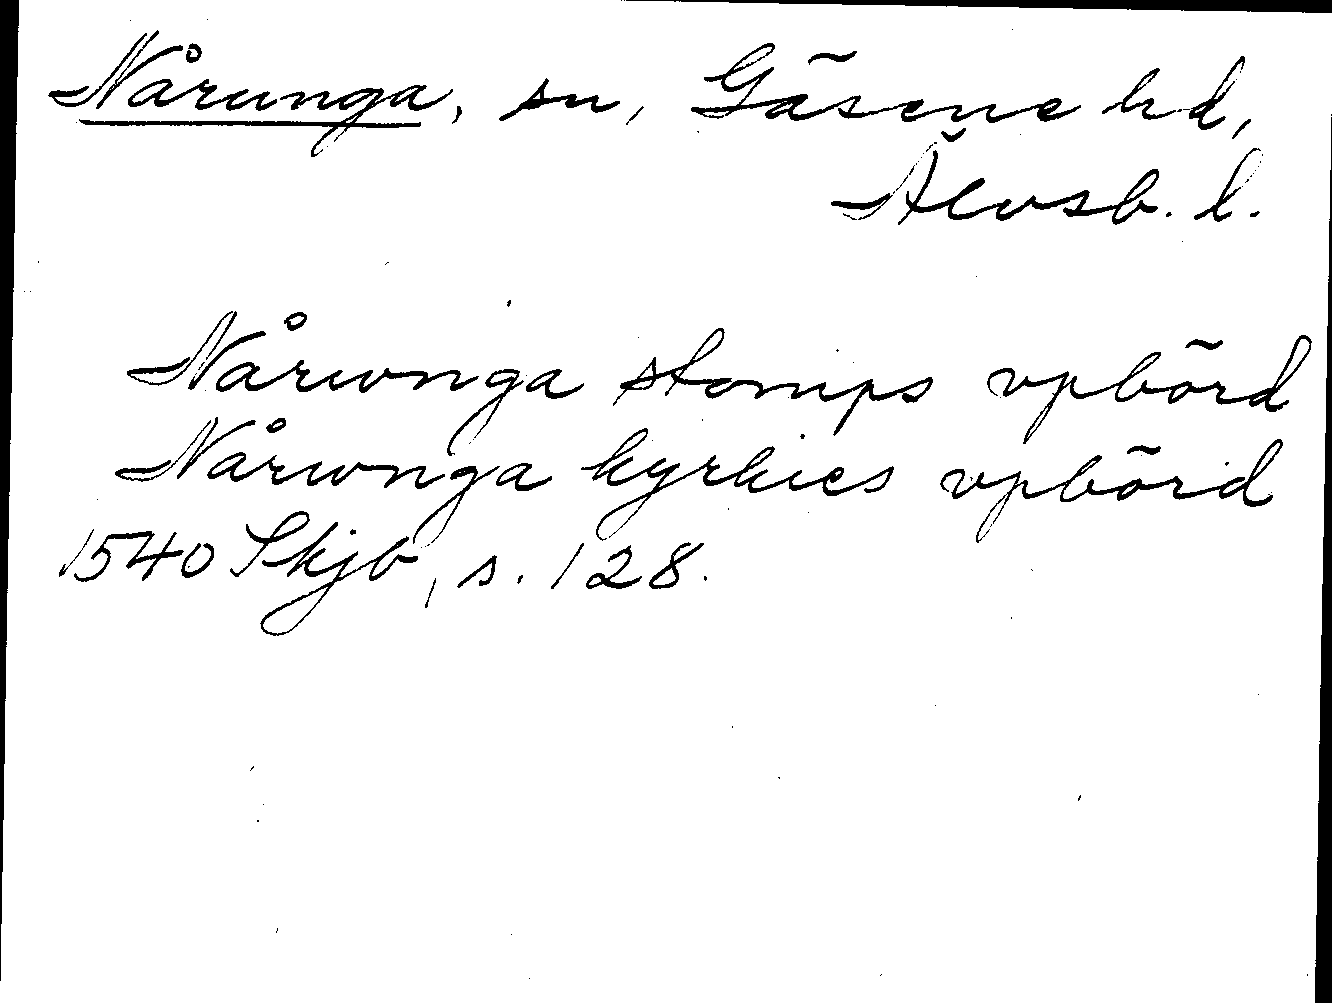 Nårunga, sn, Gäsene hd,
Älvsb. l.
Nårwnga stomps vpbörd
Nårwnga kyrkies vpbörd
1540 Skjb, s. 128.